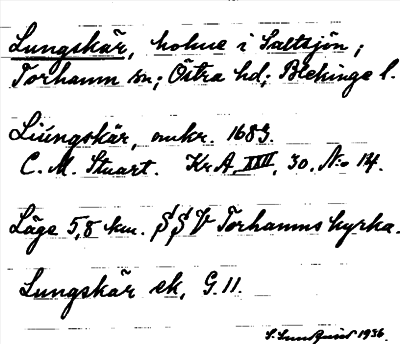 Lungskär, holme i Saltsjön;
Torhamn sn; Östra hd; Blekinge l.
Liúngskär, omkr. 1683.
C. M. Stuart. Kr A. XXIII, 30. No 14.
Läge 5,8 km. SSV Torhamns kyrka.
Lungskär ek, G. 11.
S. Sundquist 1936.